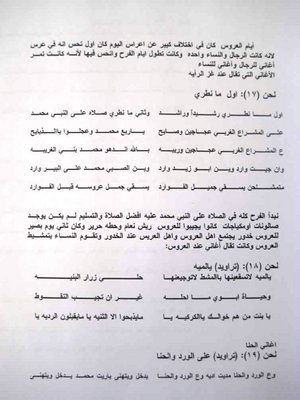 أيام العروس كان في اختلاف كبير عن اعراس اليوم كان اول تحس انه في عرس
لانه كانت الرجال والنساء واحده وكانت تطول ايام الفرح وانحس فيها لأنه كانت تمر
أغاني للرجال وأغاني للنساء
الأغاني التي تقال عند غز الرايه
لحن (١٧): اول ما نطري
أول ما نطري رشيداً وراشد وثاني ما نطري صلاه على النبي محمد
على المشراع الغربي عجاجين وصايح ياربع محمد وعجلوا بالذبايح
ع المشراع الغربي عجاجين وريبه بالله اندهو محمد بني الغريبه
وان جيت وارد وين ابو زيد وارد وين الصبي محمد على البير وارد
بسقي جميل الفوارد يسقي جمل عروسه قبل الفوارد
نبدأ الفرح كله في الصلاه على النبي محمد عليه افضل الصلاة والتسليم لم تكن يوجد
صالونات اومكياجات كانوا يجيبوا للعروس ريش نعام وحطه حرير وكان ثاني يوم يصير
للعروس خدور يجتمع اهل العروس واهل العريس عند الخدور وتقوم النساء بتمشيط
العروس وكانت تقال أغاني عند العروس:
لحن (١٨): (تراويد) بالميه
بالميه لاتسقعينها بالمشط لاتوجعينها حلي زرار البنيه
وحياة ابوي ما احله غير ان تجيب النقوط
يا بنت من هم خوالك ياالكركيه يا مايذبحوا الا الثنيه يا مايقبلون الرديه يا
اغاني الحنا
لحن (١٩): (تراويد) على الورد والحنا
وع الورد والحنا مديت اديه وع الورد والحنا يدخل ويتهنى ياريت محمد يدخل ويتهنى